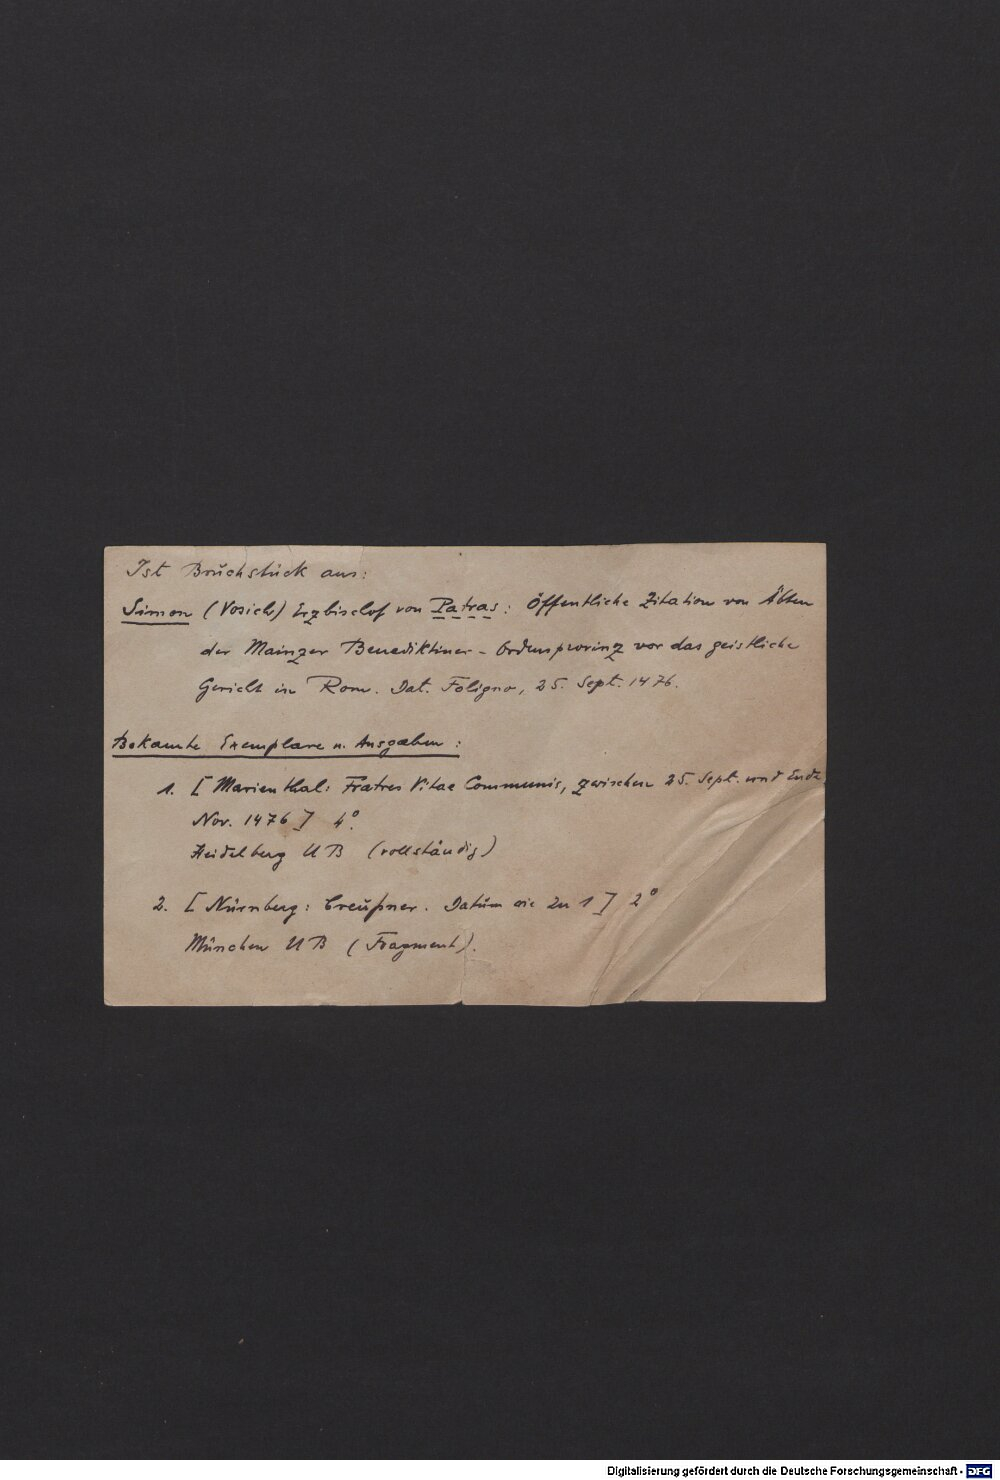 Ist Bruchstück aus:
Simon (Vosich) Erzbischof von Patras: Öffentliche Zitation von Äbten
der Mainzer Benediktiner-Ordensprovinz vor das geistliche
Gericht in Rom. Dat. Foligno, 25. Sept. 1476.
Bekannte Exemplare u. Ausgaben:
1. [Marienthal: Fratres Vitae Communis, zwischen 25. Sept. und Ende
Nov. 1476] 4°.
Heidelberg UB (vollständig)
2. [Nürnberg: Creußner. Datum wie zu 1] 2°
München UB (Fragment).
Digitalisierung gefördert durch die Deutsche Forschungsgemeinschaft - DFG